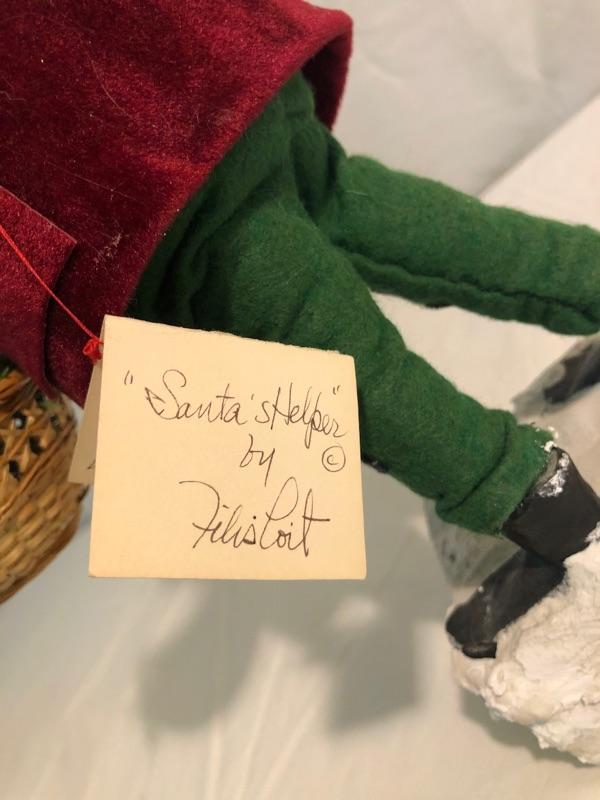 "Santa's Helper"
by ©
Filis Coit